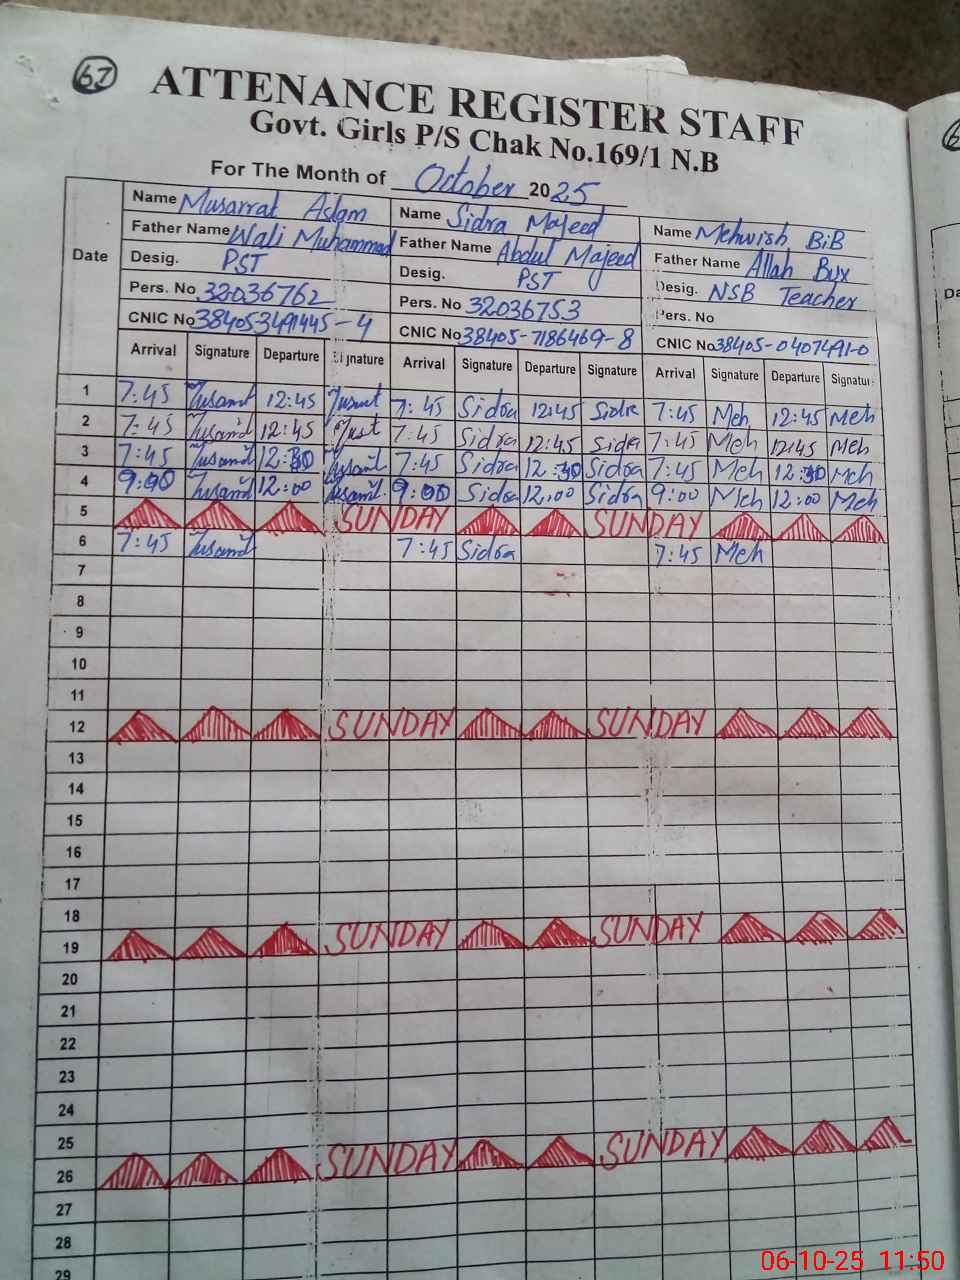 67
ATTENANCE REGISTER STAFF
Govt. Girls P/S Chak No.169/1 N.B
For The Month of October 2025
Date Name Musarrat Aslam Name Sidra Majeed Name Mehwish BiB
Father Name Wali Muhammad Father Name Abdul Majeed Father Name Allah Bux
Desig. PST Desig. PST Desig. NSB Teacher
Pers. No 32036762 Pers. No 32036753 Pers. No
CNIC No 384053491445-4 CNIC No 38405-7186469-8 CNIC No 38405-0407491-0
Arrival Signature Departure Signature Arrival Signature Departure Signature Arrival Signature Departure Signatur
1 7:45 12:45 7:45 Sidra 12:45 Sidra 7:45 Meh 12:45 Meh
2 7:45 12:45 7:45 Sidra 12:45 Sidra 7:45 Meh 12:45 Meh
3 7:45 12:30 7:45 Sidra 12:30 Sidra 7:45 Meh 12:30 Meh
4 9:00 12:00 9:00 Sidra 12:00 Sidra 9:00 Meh 12:00 Meh
5 SUNDAY SUNDAY
6 7:45 7:45 Sidra 7:45 Meh
7
8
9
10
11
12 SUNDAY SUNDAY
13
14
15
16
17
18
19 SUNDAY SUNDAY
20
21
22
23
24
25
26 SUNDAY SUNDAY
27
28
29
06-10-25 11:50